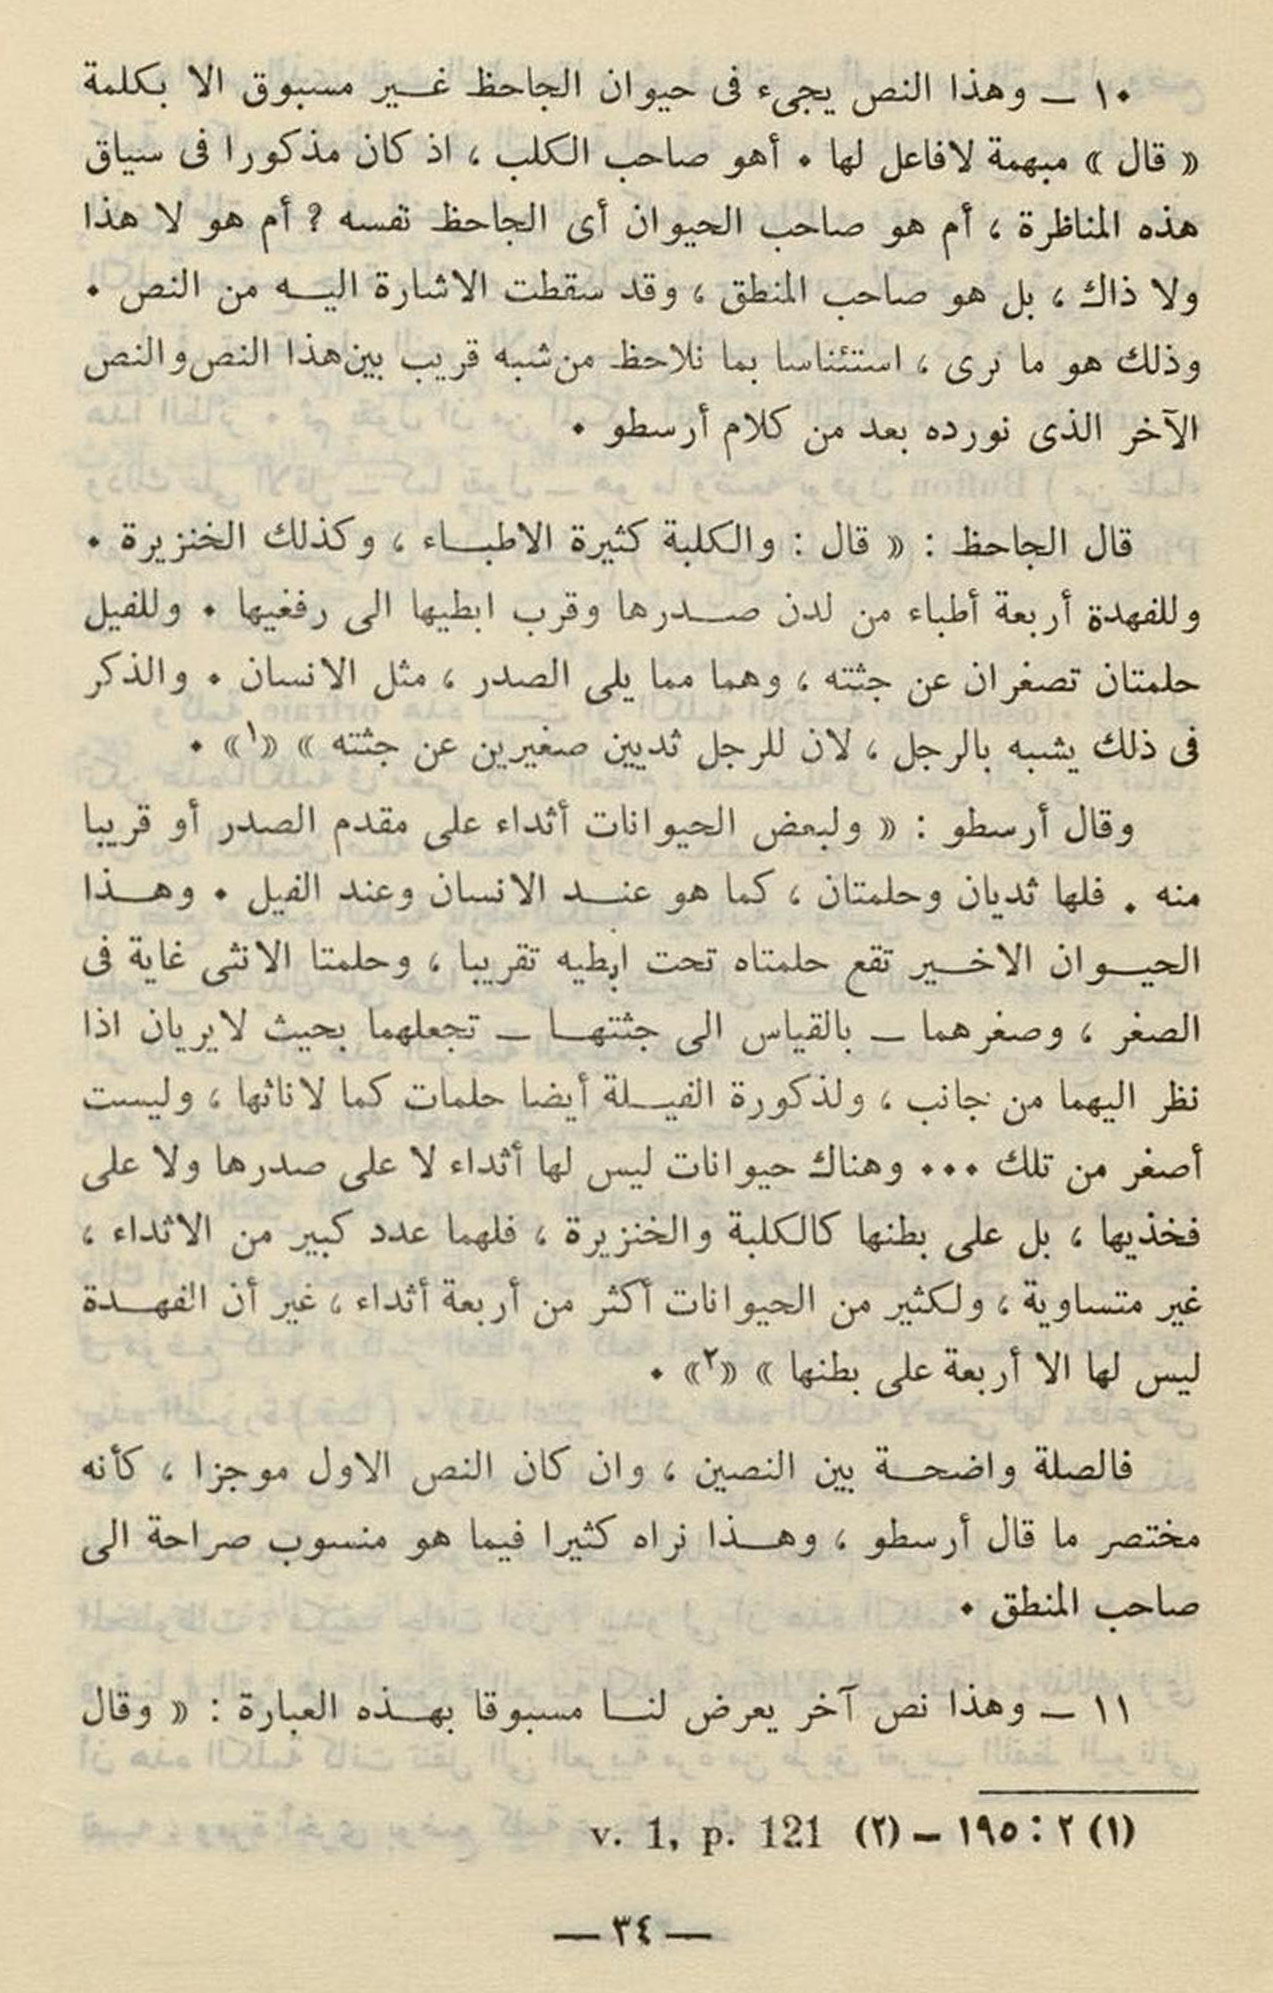 ١٠ ــ وهذا النص يجىء فى حيوان الجاحظ غير مسبوق الا بكلمة
« قال » مبهمة لافاعل لها . أهو صاحب الكلب ، اذ كان مذكورا فى سياق
هذه المناظرة ، أم هو صاحب الحيوان أى الجاحظ نفسه ? أم هو لا هذا
ولا ذاك ، بل هو صاحب المنطق ، وقد سقطت الاشارة اليه من النص .
وذلك هو ما نرى ، استئناسا بما نلاحظ من شبه قريب بين هذا النص والنص
الآخر الذى نورده بعد من كلام أرسطو .
قال الجاحظ : « قال : والكلبة كثيرة الاطباء ، وكذلك الخنزيرة .
وللفهدة أربعة أطباء من لدن صدرها وقرب ابطيها الى رفغيها . وللفيل
حلمتان تصغران عن جثته ، وهما مما يلى الصدر ، مثل الانسان . والذكر
فى ذلك يشبه بالرجل ، لان للرجل ثديين صغيرين عن جثته » «١» .
وقال أرسطو : « ولبعض الحيوانات أثداء على مقدم الصدر أو قريبا
منه . فلها ثديان وحلمتان ، كما هو عند الانسان وعند الفيل . وهذا
الحيوان الاخير تقع حلمتاه تحت ابطيه تقريبا ، وحلمتا الانثى غاية فى
الصغر ، وصغرهما ــ بالقياس الى جثتها ــ تجعلهما بحيث لايريان اذا
نظر اليهما من جانب ، ولذكورة الفيلة أيضا حلمات كما لاناثها ، وليست
أصغر من تلك ... وهناك حيوانات ليس لها أثداء لا على صدرها ولا على
فخذيها ، بل على بطنها كالكلبة والخنزيرة ، فلهما عدد كبير من الاثداء ،
غير متساوية ، ولكثير من الحيوانات أكثر من أربعة أثداء ، غير أن الفهدة
ليس لها الا أربعة على بطنها » «٢» .
فالصلة واضحة بين النصين ، وان كان النص الاول موجزا ، كأنه
مختصر ما قال أرسطو ، وهذا نراه كثيرا فيما هو منسوب صراحة الى
صاحب المنطق .
١١ ــ وهذا نص آخر يعرض لنا مسبوقا بهذه العبارة : « وقال
(١) ٢ : ١٩٥ ــ (٢) v. 1, p. 121
ــ ٣٤ ــ